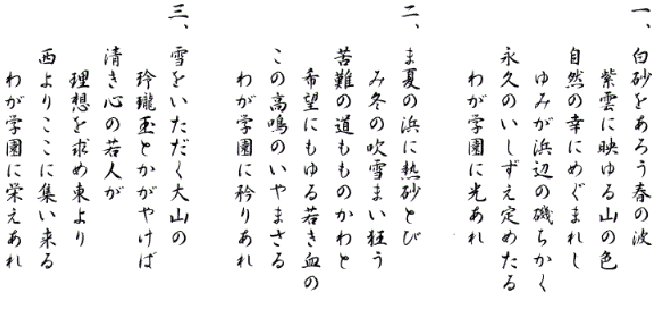 一、白砂をあろう春の波
紫雲に映ゆる山の色
自然の幸にめぐまれし
ゆみが浜辺の磯ちかく
永久のいしずえ定めたる
わが学園に光あれ
二、ま夏の浜に熱砂とび
み冬の吹雪まい狂う
苦難の道もものかわと
希望にもゆる若き血の
この高鳴のいやまさる
わが学園に矜りあれ
三、雪をいただく大山の
玲瓏玉とかがやけば
清き心の若人が
理想を求め東より
西よりここに集い来る
わが学園に栄えあれ